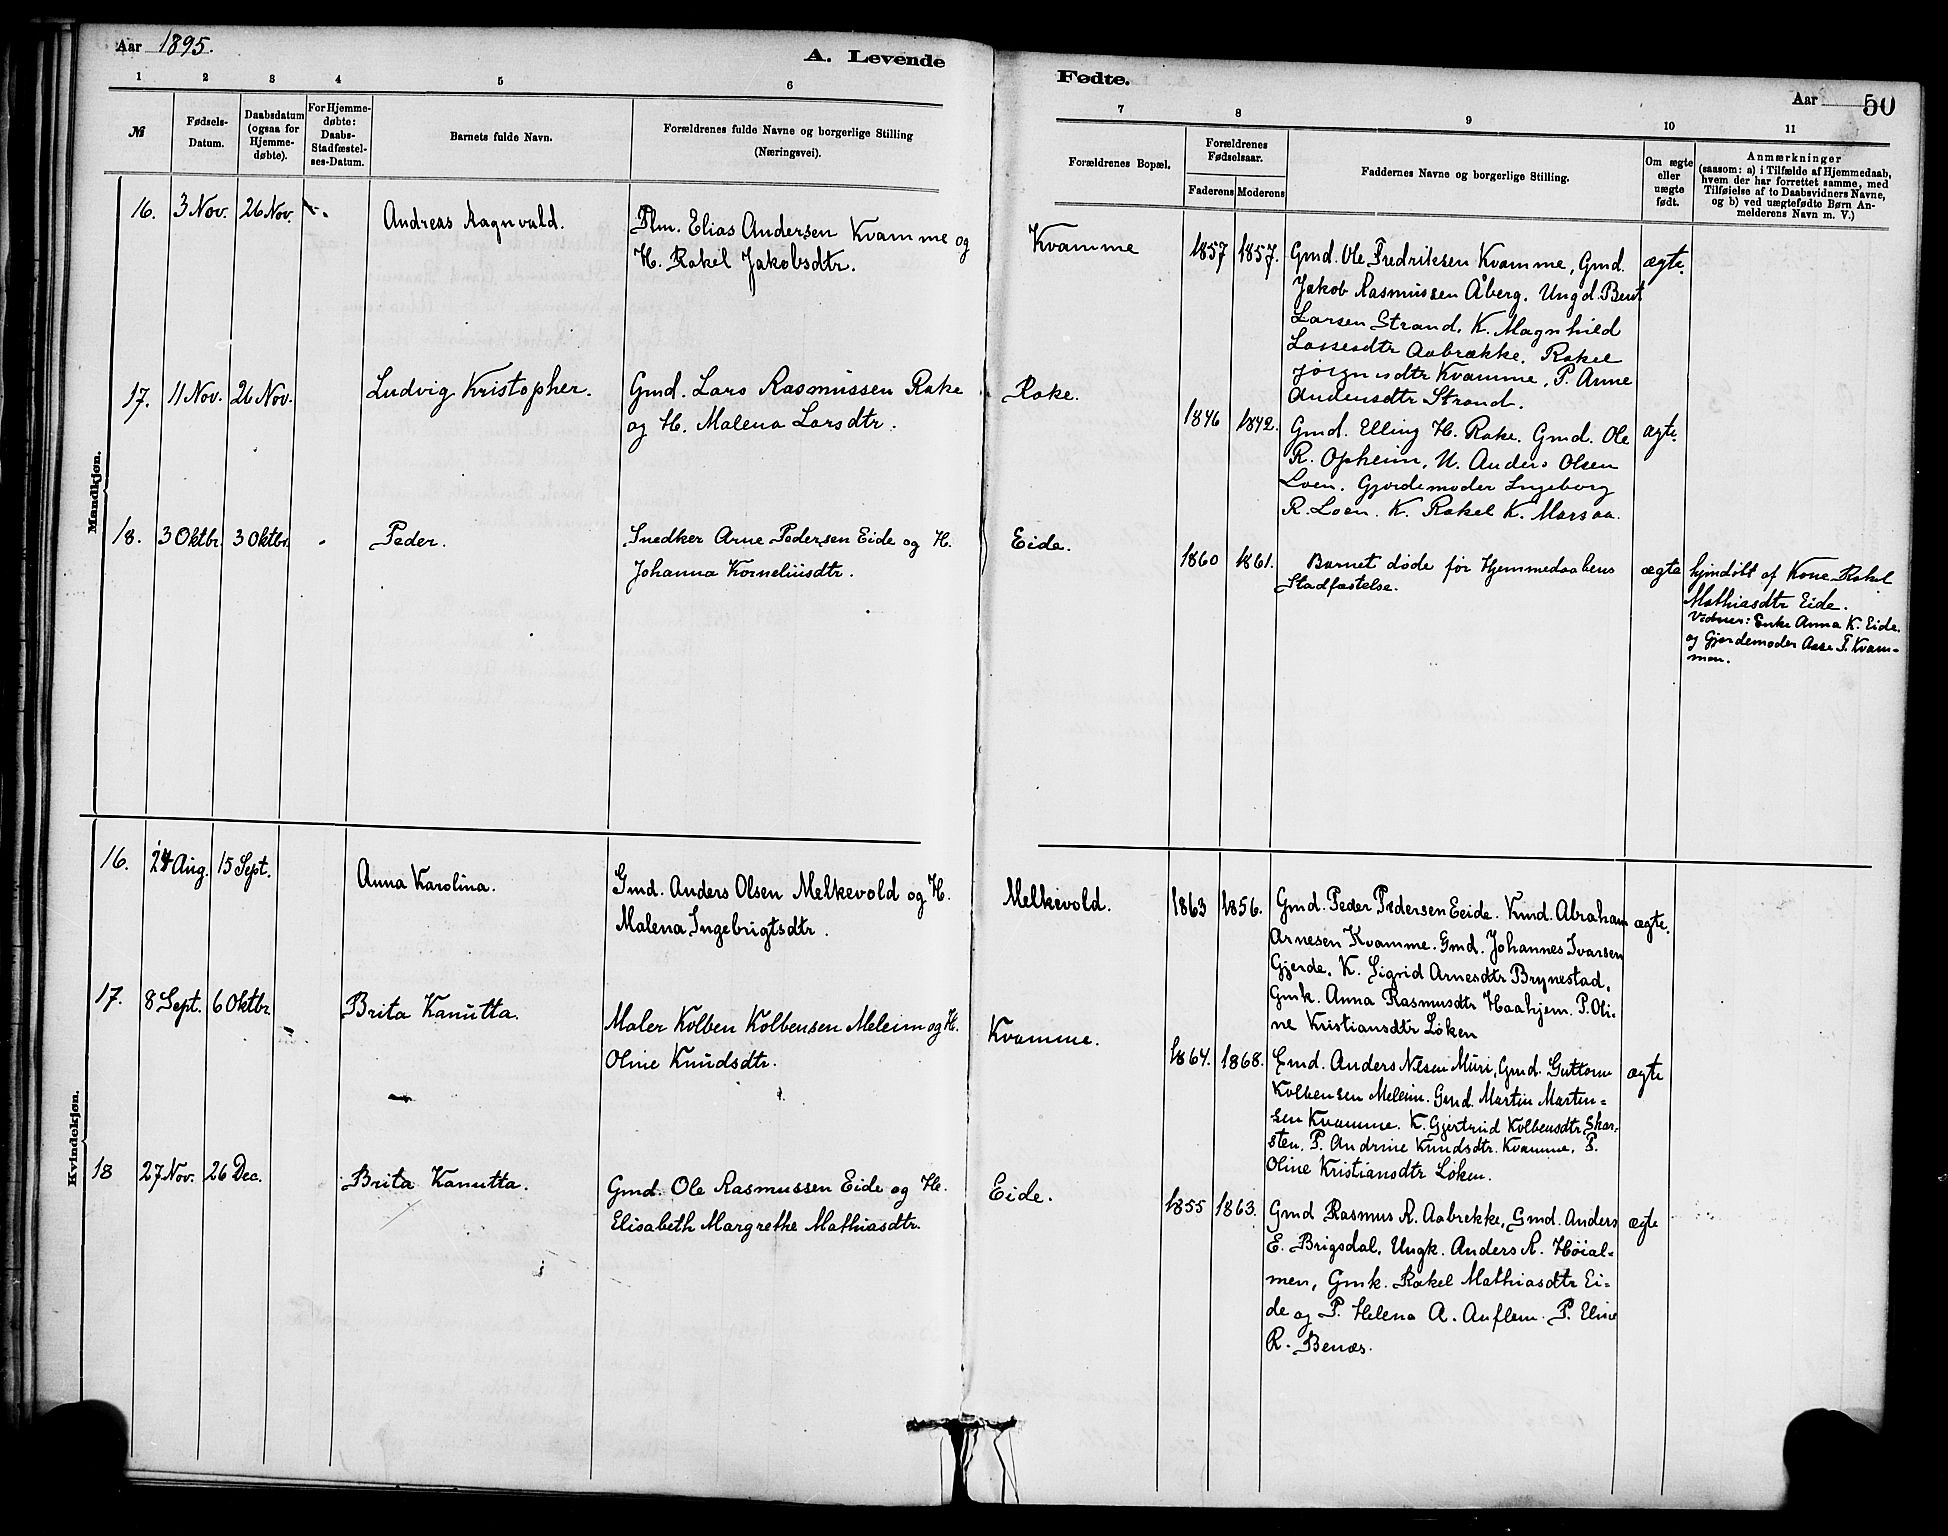 Aar 1895.
A. Levende
Fødte.
Aar
50
1 2 3 4 5 6
7 8 9 10 11
№
Fødsels-
Datum.
Daabsdatum
(ogsaa for
Hjemme-
døbte).
For Hjemme-
døbte:
Daabs-
Stadfæstel-
ses-Datum.
Barnets fulde Navn.
Forældrenes fulde Navne og borgerlige Stilling
(Næringsvei).
Forældrenes Bopæl.
Forældrenes
Fødselsaar.
Faderens
Moderens
Faddernes Navne og borgerlige Stilling.
Om ægte
eller
uægte
født.
Anmærkninger
(saasom: a) i Tilfælde af Hjemmedaab,
hvem der har forrettet samme, med
Tilføielse af to Daabsvidners Navne,
og b) ved uægtefødte Børn An-
melderens Navn m. V.)
Mandkjøn.
16. 3 Nov. 26 Nov.
Andreas Ragnvald.
Plm. Elias Andersen Kvamme og
H. Rakel Jakobsdtr.
Kvamme
1857 1857.
Gmd. Ole Fredriksen Kvamme, Gmd.
Jakob Rasmussen Åberg. Ungd. Bent
Larsen Strand. K. Magnhild
Lassesdtr Aabrække. Rakel
Jørgensdtr Kvamme, P. Anne
Andersdtr Strand.
ægte.
17. 11 Nov. 26 Nov.
Ludvig Kristopher.
Gmd. Lars Rasmussen Rake
og H. Malena Larsdtr.
Rake.
1846 1842.
Gmd. Elling H. Rake. Gmd. Ole
R. Opheim, U. Anders Olsen
Loen. Gjordemoder Ingeborg
R. Loen. K. Rakel K. Marsaa.
ægte.
18. 3 Oktbr. 3 Oktbr.
Peder.
Snedker Arne Pedersen Eide og H.
Johanna Korneliusdtr.
Eide.
1860 1861.
Barnet døde før Hjemmedaabens
Stadfæstelse.
ægte
hjmdøbt af Kone Rakel
Mathiasdtr Eide.
Vidner: Enke Anna K. Eide.
og Gjordemoder Aase T. Kvam-
men.
Kvindekjøn.
16. 24 Aug. 15 Sept.
Anna Karolina.
Gmd. Anders Olsen Melkevold og H.
Malena Ingebrigtsdtr.
Melkevold.
1863 1856.
Gmd. Peder Pedersen Eeide. Kmd. Abraham
Arnesen Kvamme. Gmd. Johannes Ivarsen
Gjerde. K. Sigrid Arnesdtr Brynestad,
Gmk. Anna Rasmusdtr Haahjem. P. Oli-
ne Kristiansdtr Løken
ægte.
17. 8 Sept. 6 Oktbr.
Brita Kanutta.
Maler Kolben Kolbensen Meleim og H.
Oline Knudsdtr.
Kvamme.
1864. 1868.
Gmd. Anders Nilsen Muri, Gmd. Guttorm
Kolbensen Meleim. Gmd. Martin Marten-
sen Kvamme. K. Gjertrud Kolbensdtr Skar-
sten. P. Andrine Knudsdtr. Kvamme. P.
Oline Kristiansdtr Løken.
ægte
18 27 Nov. 26 Dec.
Brita Kanutta.
Gmd. Ole Rasmussen Eide og H.
Elisabeth Margrethe Mathiasdtr.
Eide.
1855 1863.
Gmd Rasmus R. Aabrekke, Gmd. Anders
E. Brigsdal, Ungk. Anders R. Høial-
men, Gmk. Rakel Mathiasdtr Ei-
de og P. Helena A. Auflem. P. Eline
R. Benæs.
ægte